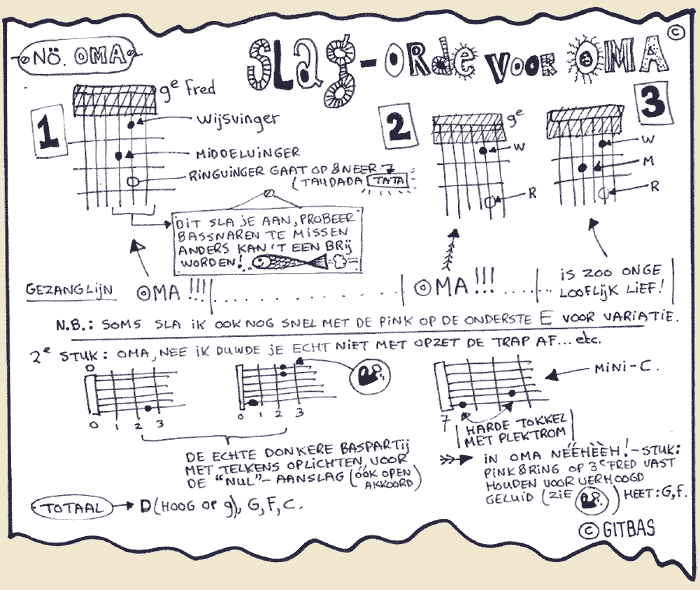 NÖ. OMA
SLAG-ORDE VOOR OMA
©
1
9e fred
WIJSVINGER
MIDDELVINGER
RINGVINGER GAAT OP & NEER
(TAUDADA TATA
DIT SLA JE AAN, PROBEER
BASSNAREN TE MISSEN
ANDERS KAN 'T EEN BRIJ
WORDEN!
2
9e
W
R
3
W
M
R
GEZANGLIJN
OMA !!! . . . . . . . . . . . . . . . .
OMA !!! . . . . . .
IS ZOO ONGE
LOOFLIJK LIEF!
N.B.: SOMS SLA IK OOK NOG SNEL MET DE PINK OP DE ONDERSTE E VOOR VARIATIE.
2e STUK: OMA, NEE IK DUWDE JE ECHT NIET MET OPZET DE TRAP AF... etc.
0
0 1 2 3
0 1 2 3
MINI-C.
7
HARDE TOKKEL
MET PLEKTROM
DE ECHTE DONKERE BASPARTIJ
MET TELKENS OPLICHTEN, VOOR
DE "NUL"- AANSLAG (ÓÓK OPEN
AKKOORD)
IN OMA NÉÉHÈÈH!-STUK:
PINK & RING OP 3e FRED VAST
HOUDEN VOOR VERHOOGD
GELUID (ZIE ) HEET: G, F.
TOTAAL
D (HOOG OP 9), G, F, C.
© GITBAS